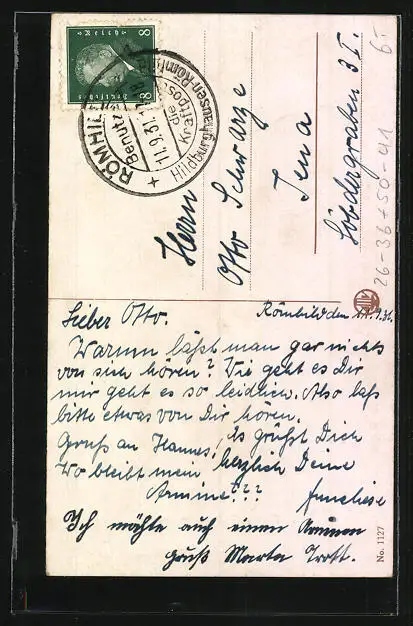 8 8
Deutsches Reich
RÖMHILD
Benutzt
die
Kraftpost
Hildburghausen-Römhild
11.9.31
Herrn
Otto Schwarze
Jena
Löbdergraben 3 I.
26-36+50-41
Lieber Otto.
Römhild den 11.9.31.
Warum läßt man gar nichts
von sich hören? Wie geht es Dir
mir geht es so leidlich. Also laß
bitte etwas von Dir hören.
Gruß an Hannes! Es grüßt Dich
Wo bleibt mein herzlich Deine
Armine??? Anneliese
Ich möchte auch einen
gruß Marta Trott.
No. 1127